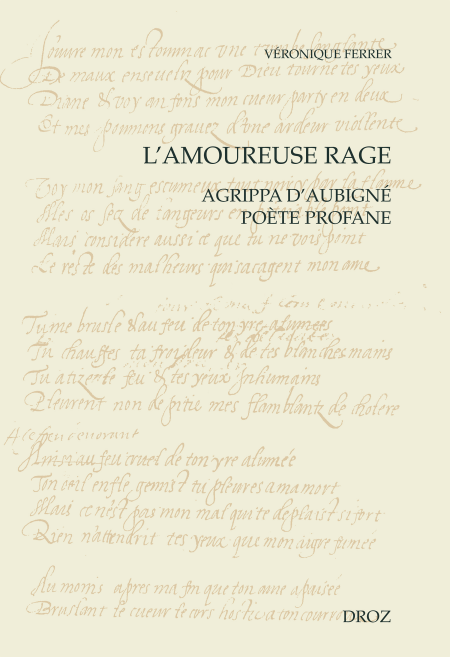 VÉRONIQUE FERRER
J'ouvre mon estommac une tumbe sanglante
De maux enseveliz pour Dieu tourne tes yeux
Diane & voy au fons mon cueur party en deux
Et mes poumons gravez d'une ardeur viollente
L'AMOUREUSE RAGE
Voy mon sang escumeux tout noircy par la flamme
AGRIPPA D'AUBIGNÉ
Mes os secz de langeurs en
POÈTE PROFANE
Mais considere aussi ce que tu ne vois point
Le reste des malheurs qui sacagent mon ame
Tu me brusle & au feu de ton yre alumee
Tu chauffes ta froideur & de tes blanches mains
Tu atize le feu & tes yeux inhumains
Pleurent non de pitie mes flambantz de cholere
A ce feu
feu cruel de ton yre alumée
Ton oeil enflé gemist tu pleures a ma mort
Mais ce n'est pas mon mal qui te deplaist si fort
Rien n'attendrit tes yeux que mon aigre fumee
Au moins apres ma fin que ton ame apaisée
Bruslant le cueur le cors
DROZ